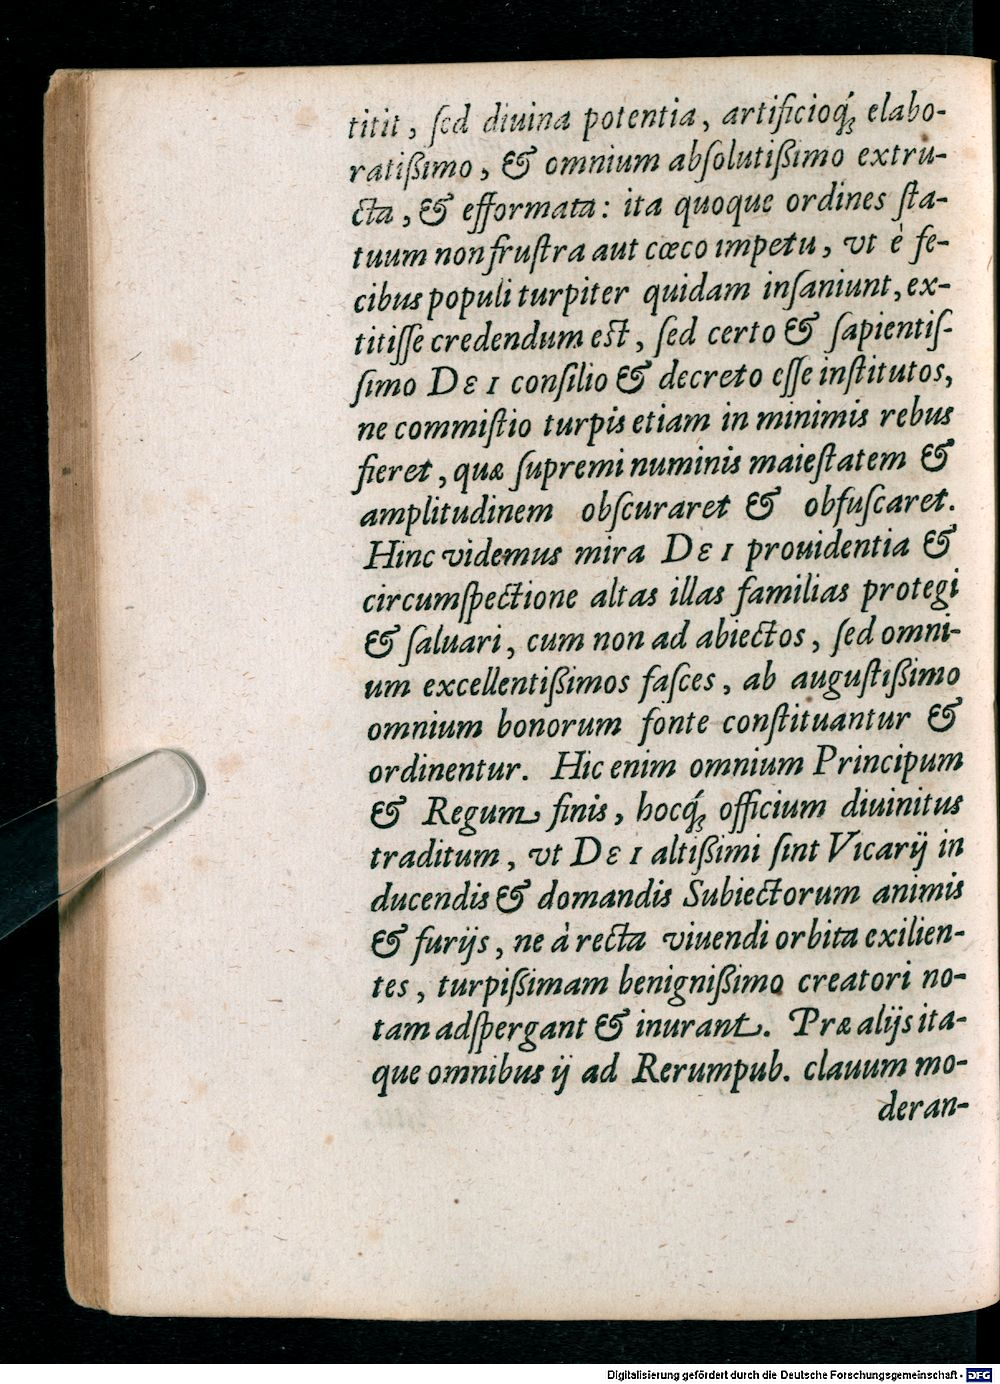 titit, ſed diuina potentia, artificioq́ꝫ elabo-
ratißimo, & omnium abſolutißimo extru-
cta, & efformata: ita quoque ordines ſta-
tuum non fruſtra aut cœco impetu, vt è fe-
cibus populi turpiter quidam inſaniunt, ex-
titiſſe credendum est, ſed certo & ſapientiſ-
ſimo DEI conſilio & decreto eſſe inſtitutos,
ne commiſtio turpis etiam in minimis rebus
fieret, quæ ſupremi numinis maieſtatem &
amplitudinem obſcuraret & obfuſcaret.
Hinc videmus mira DEI prouidentia &
circumſpectione altas illas familias protegi
& ſaluari, cum non ad abiectos, ſed omni-
um excellentißimos faſces, ab auguſtißimo
omnium bonorum fonte conſtituantur &
ordinentur. Hic enim omnium Principum
& Regum finis, hocq́ꝫ officium diuinitus
traditum, vt DEI altißimi ſint Vicarij in
ducendis & domandis Subiectorum animis
& furijs, ne à recta viuendi orbita exilien-
tes, turpißimam benignißimo creatori no-
tam adſpergant & inurant. Præ alijs ita-
que omnibus ij ad Rerumpub. clauum mo-
deran-
Digitalisierung gefördert durch die Deutsche Forschungsgemeinschaft - DFG